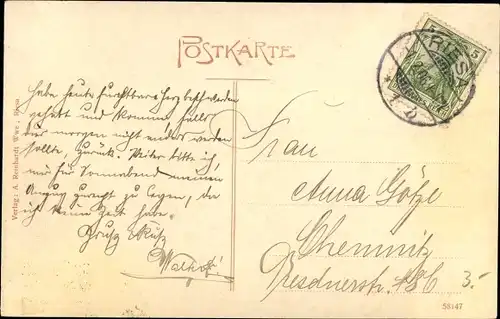 POSTKARTE
RIESA
5
habe heute furchtbare Herzbeschwerden
gehabt und komme, falls
bis morgen nicht anders werden
sollte, zurück. Weiter bitte ich,
mir für Sonnabend meinen
Anzug zurecht zu legen, da
ich keine Zeit habe.
Gruß
Verlag: A. Reinhardt Wwe., Riesa
Frau
Anna Götze
Chemnitz
Dresdnerstr.
3.
58147